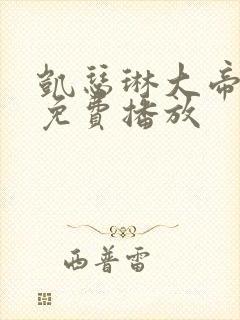 凱瑟琳大帝
免費播放
西普雷